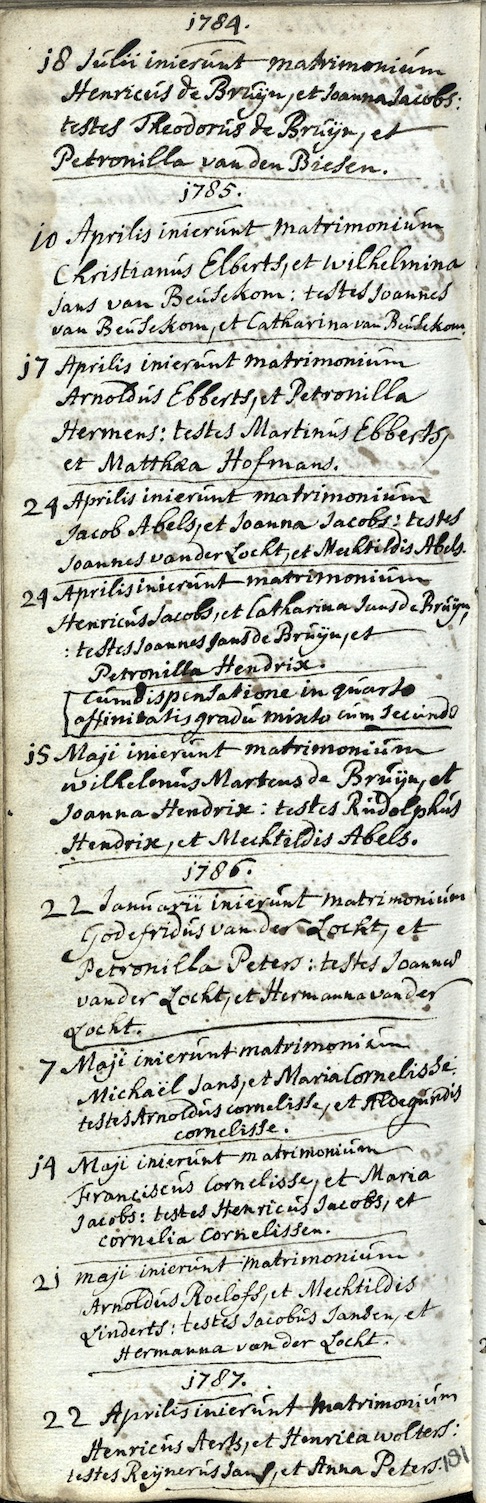 1784.
18 Julii inierunt matrimonium
Henricus de Bruijn, et Joanna Jacobs:
testes Theodorus de Bruijn, et
Petronilla van den Biesen.
1785.
10 Aprilis inierunt matrimonium
Christianus Elberts, et Wilhelmina
Jans van Beusekom: testes Joannes
van Beusekom, et Catharina van Beusekom.
17 Aprilis inierunt matrimonium
Arnoldus Ebberts, et Petronilla
Hermens: testes Martinus Ebberts,
et Matthaea Hofmans.
24 Aprilis inierunt matrimonium
Jacob Abels, et Joanna Jacobs: testes
Joannes van der Locht, et Mechtildis Abels.
24 Aprilis inierunt matrimonium
Henricus Jacobs, et Catharina Jans de Bruijn,
: testes Joannes Jans de Bruijn, et
Petronilla Hendrix.
Cum dispensatione in quarto
affinitatis gradu mixto cum secundo
15 Maji inierunt matrimonium
Wilhelmus Martens de Bruijn, et
Joanna Hendrix: testes Rudolphus
Hendrix, et Mechtildis Abels.
1786.
22 Januarii inierunt matrimonium
Godefridus van der Locht, et
Petronilla Peters: testes Joannes
van der Locht, et Hermanna van der
Locht.
7 Maji inierunt matrimonium
Michaël Jans, et Maria Cornelisse.
testes Arnoldus Cornelisse, et Aldegundis
Cornelisse.
14 Maji inierunt matrimonium
Franciscus Cornelisse, et Maria
Jacobs: testes Henricus Jacobs, et
Cornelia Cornelissen.
21 Maji inierunt matrimonium
Arnoldus Roelofs, et Mechtildis
Linderts: testes Jacobus Jansen, et
Hermanna van der Locht.
1787.
22 Aprilis inierunt matrimonium
Henricus Aerts, et Henrica Wolters:
testes Reijnerus Jans, et Anna Peters.
181